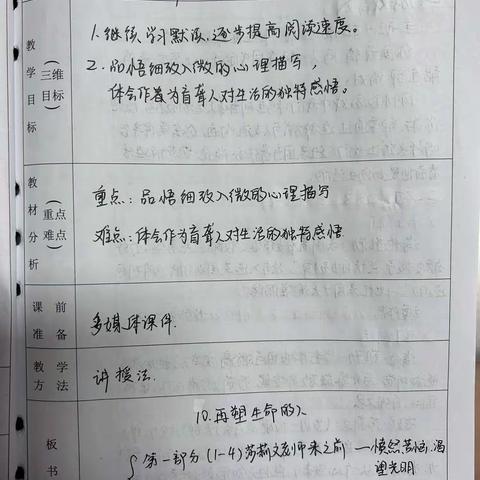 教学目标（三维目标）
1.继续学习默读，逐步提高阅读速度。
2.品悟细致入微的心理描写，
体会作者为盲聋人对生活的独特感悟。
教材分析（重点难点）
重点：品悟细致入微的心理描写
难点：体会作为盲聋人对生活的独特感悟.
课前准备
多媒体课件.
教学方法
讲授法.
10.再塑生命的人
板书
第一部分(1-4)莎莉文老师来之前 —愤怒苦恼、渴
望光明